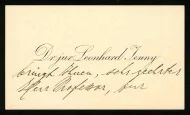 Dr jur Leonhard Jenny
bringt Ihnen, sehr geehrter
Herr Professor, nur